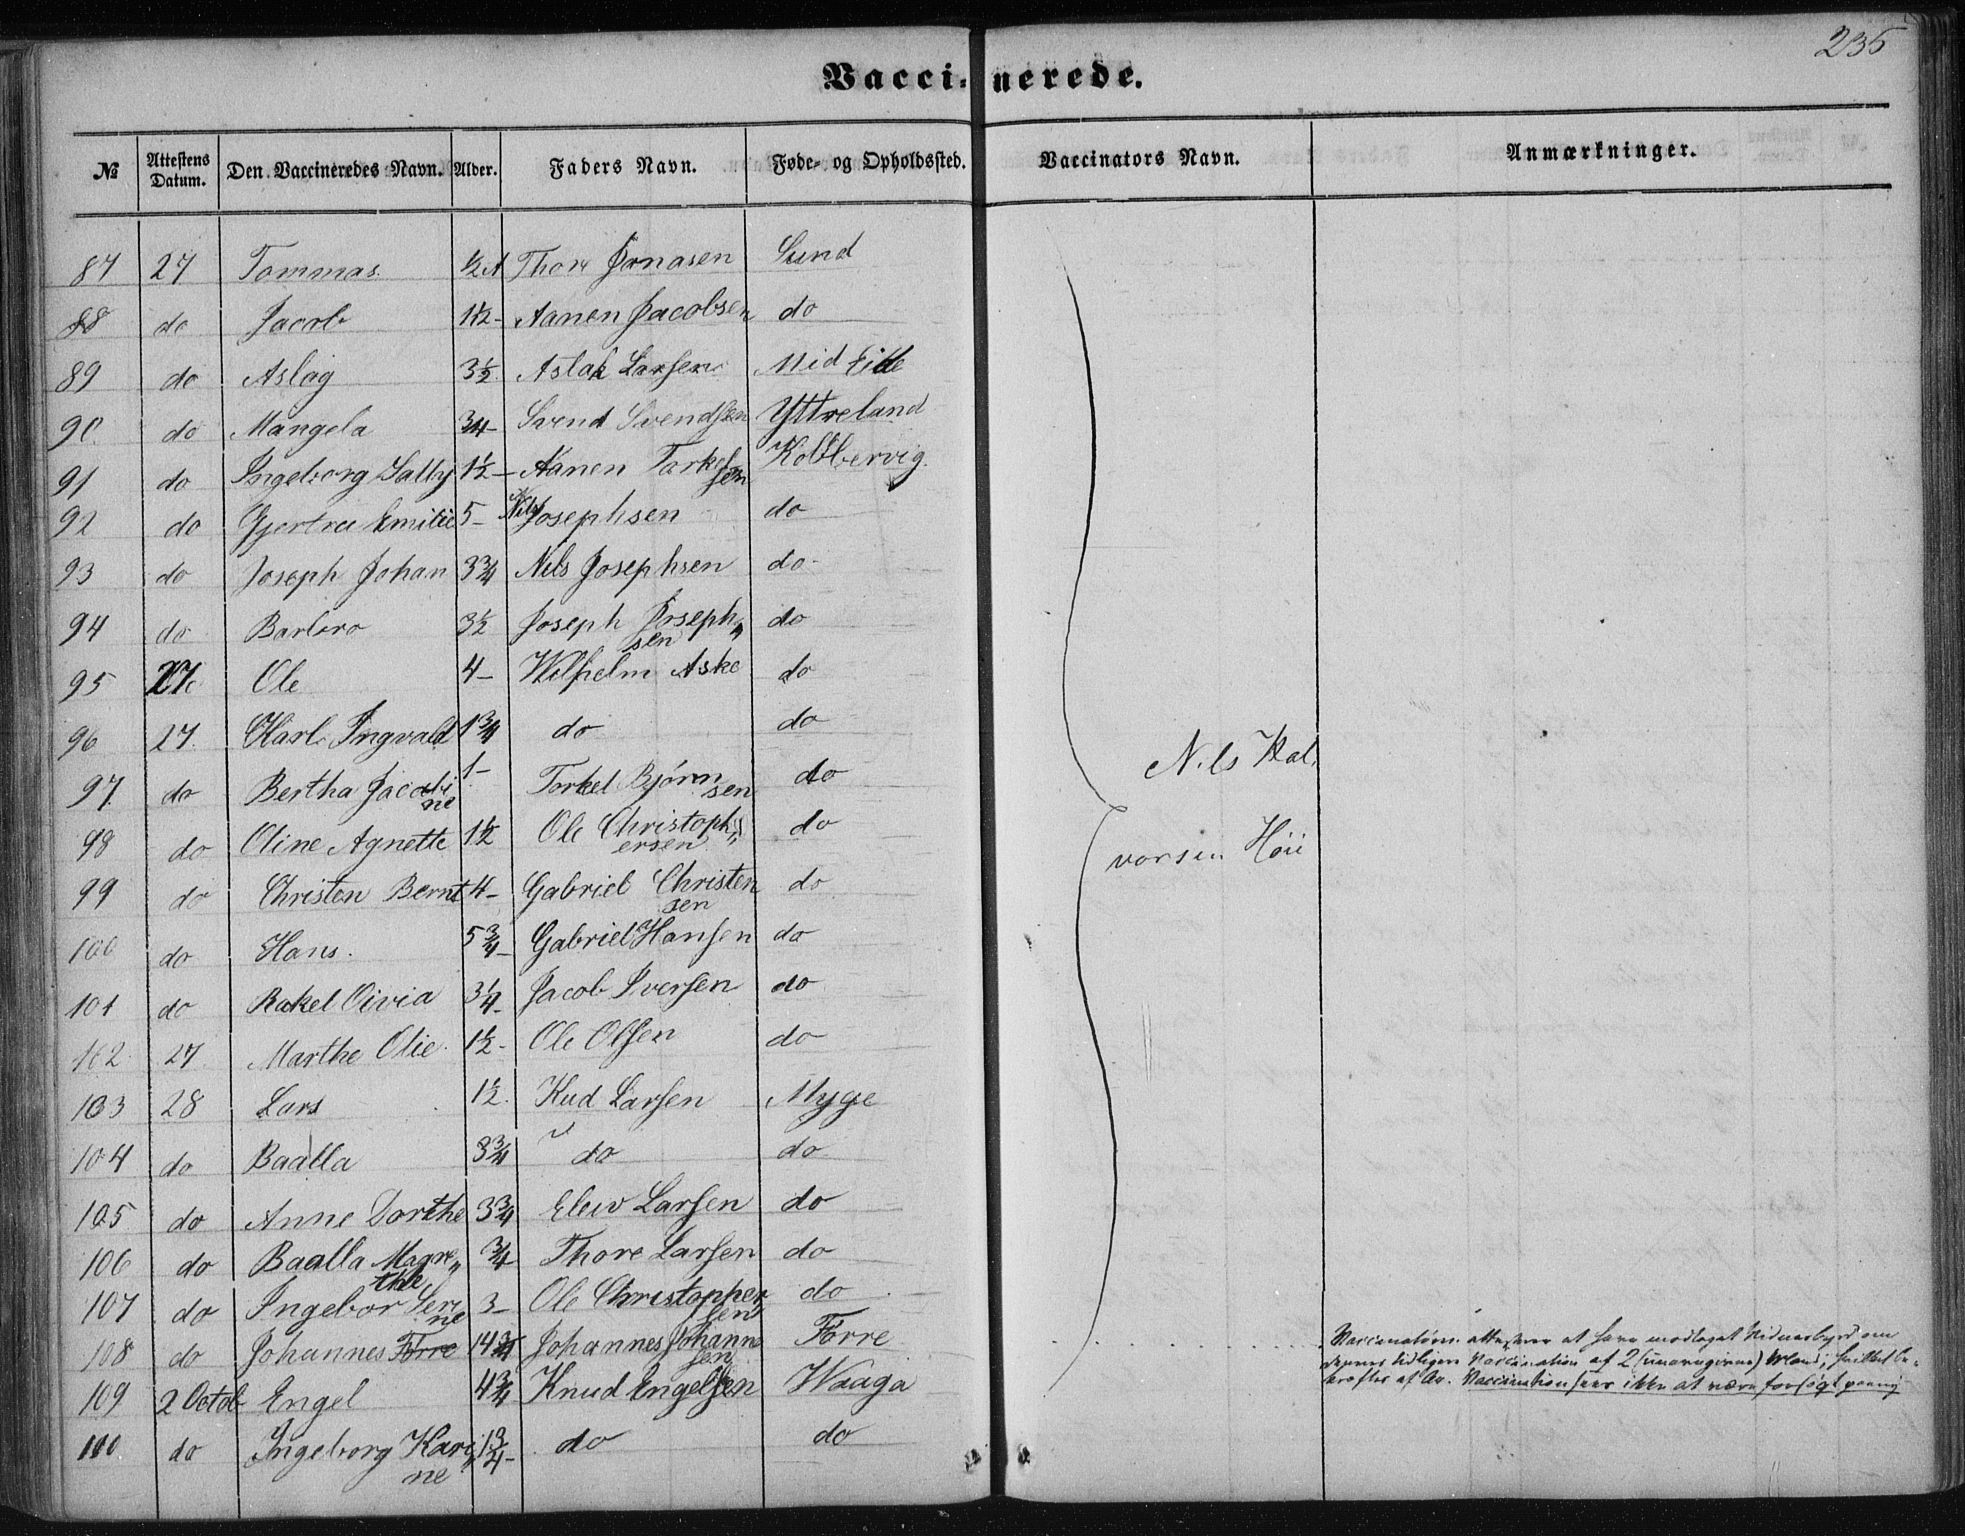 235
Vaccinerede.
№ Attestens Datum. Den Vaccineredes Navn. Alder. Faders Navn. Føde- og Opholdssted. Vaccinators Navn. Anmærkninger.
87 27 Tommas ½ A Thore Jonasen Sund
88 do Jacob 1½ - Aanen Jacobsen do
89 do Aslag 3½ Aslak Larsen Mid Eide
90 do Mangela ¾ - Svend Svendsen Yttreland
91 do Ingeborg Sally 1½ - Aanen Torkelsen Kolbervig
92 do Gjertru Emilie 5 - Nils Josephsen do
93 do Joseph Johan 3¾ Nils Josephsen do
94 do Barbro 3½ Joseph Joseph„ do
sen
95 27 Ole 4 - Wilhelm Aske do
96 27. Karl Ingvald 1¾ do do
97. do Bertha Jacobi 1 - Torkel Bjørn do
ne sen
Nils Hal
98 do Oline Agnette 1½ Ole Christoph„ do
ersen
vorsen Høie
99 do Christen Bernt 4 - Gabriel Christen do
sen
100 do Hans. 5¾ - Gabriel Hansen do
101 do Rakel Oivia 3¼ - Jacob Iversen do
102 27 Marthe Olie 1½ - Ole Olsen do
103 28 Lars 1½ Kud Larsen Myge
104 do Baalla 3¾ do do
105 do Anne Dorthe 3¾ Elew Larsen do
106 do Baalla Magre„ ¾ Thore Larsen do
the
107 do Ingebor Seri 3 - Ole Christopher do
ne sen
108 do Johannes Forre 14¾ Johannes Johanne Forre
sen
Vaccinatøren attesterer at have modtaget Vidnesbyrd om
dennes tidligere Vaccination af 2 (unavngivne) Mænd; hvilket be„
kræftes af Ar. Vaccination sees ikke at være forsøgt paany
109 2 Octob Engel 4¾ Knud Engelsen Waaga
110 do Ingeborg Kari„ 1¾ - do do
ne